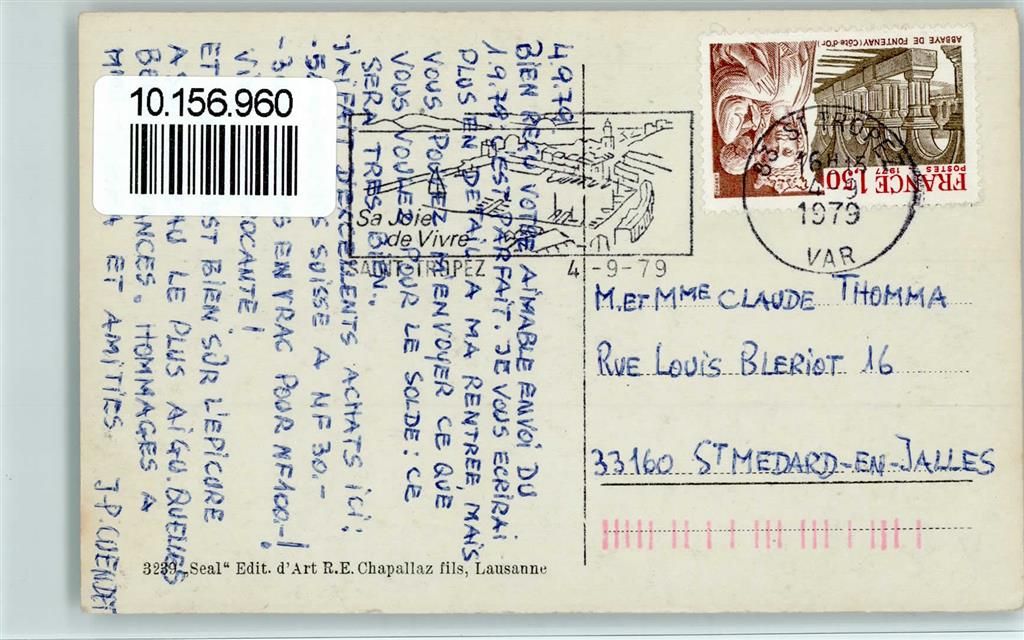 10.156.960
4.9.79.
BIEN REÇU VOTRE AIMABLE ENVOI DU
1.9.79 C'EST PARFAIT. JE VOUS ECRIRAI
PLUS EN DETAIL A MA RENTREE MAIS
VOUS POUVEZ M'ENVOYER CE QUE
VOUS VOULEZ POUR LE SOLDE: CE
SERA TRES BIEN.
J'AI FAIT D'EXCELLENTS ACHATS ICI:
SUISSE A NF 30.-
EN VRAC POUR NF 100.-!
ET BIEN SÛR L'EPICURE
LE PLUS AIGU. QUELLES
HOMMAGES A
ET AMITIES. J-P. CUENDET
Sa Joie
de Vivre
SAINT-TROPEZ 4-9-79
ABBAYE DE FONTENAY (Côte-d'Or)
FRANCE 1,50
POSTES 1977
83 ST TROPEZ
16H15
4-9
1979
VAR
M. ET MME CLAUDE THOMMA
RUE LOUIS BLERIOT 16
33160 ST MEDARD-EN-JALLES
3239 „Seal“ Edit. d'Art R.E. Chapallaz fils, Lausanne